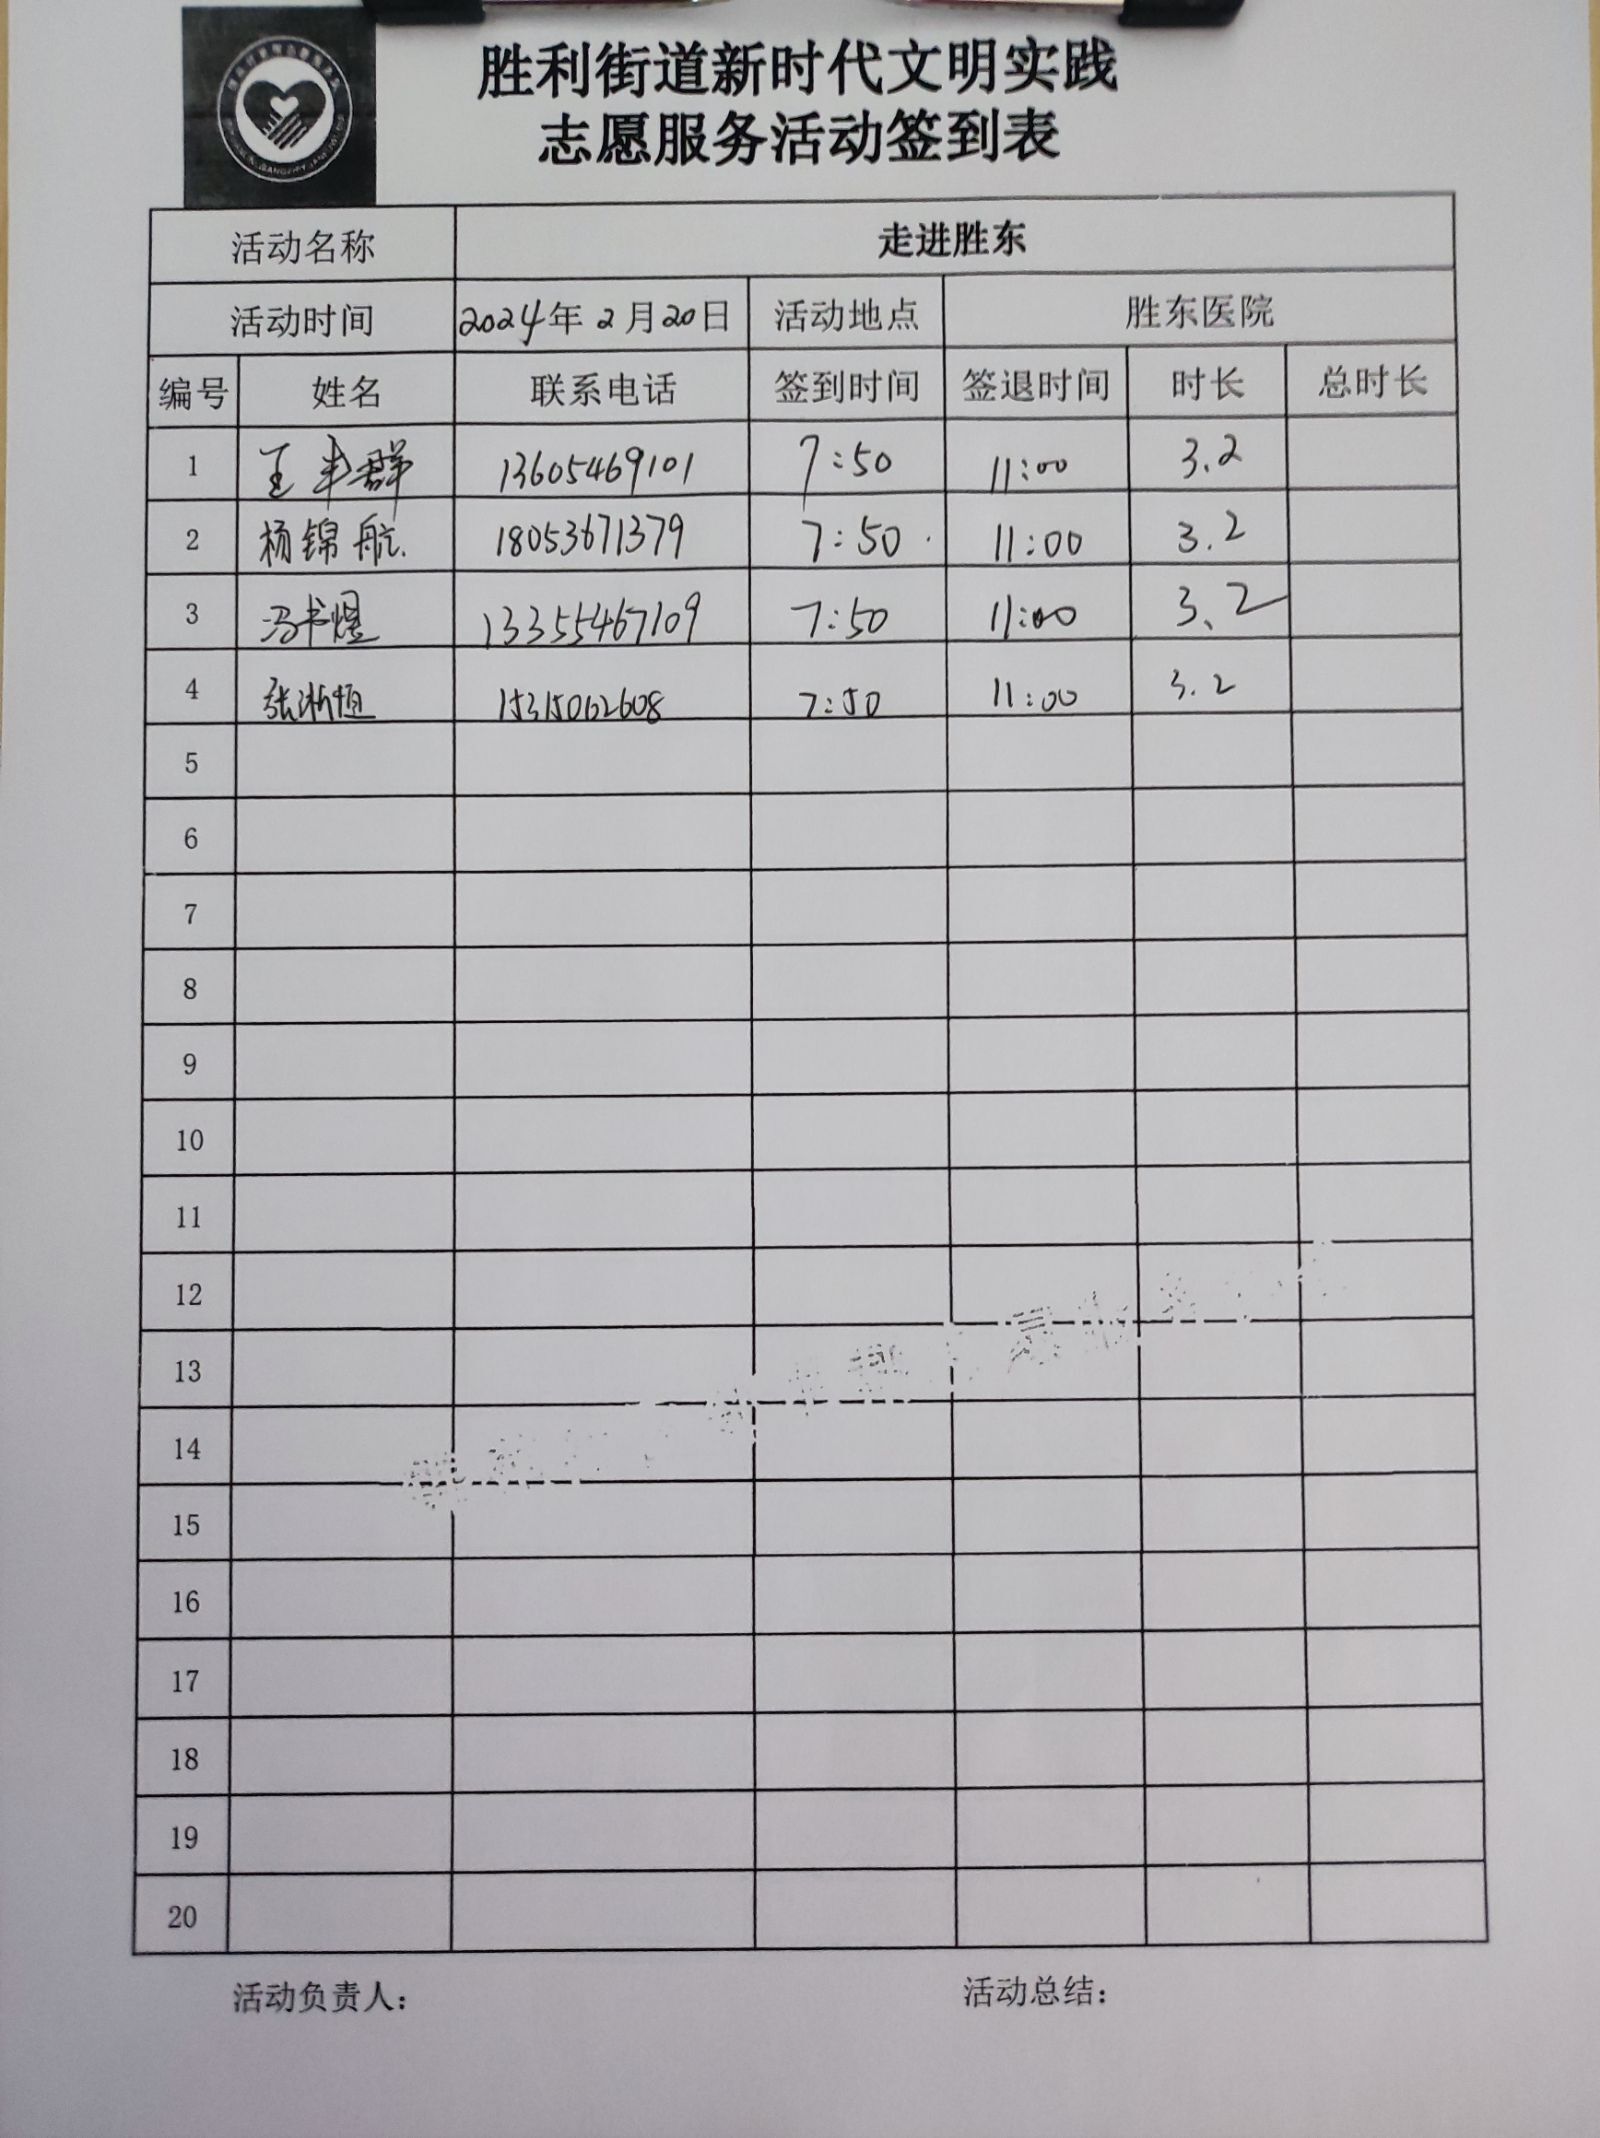 胜利街道新时代文明实践
志愿服务活动签到表
活动名称 走进胜东
活动时间 2024年2月20日 活动地点 胜东医院
编号 姓名 联系电话 签到时间 签退时间 时长 总时长
1 王丰群 13605469101 7:50 11:00 3.2
2 杨锦航 18053671379 7:50 11:00 3.2
3 冯书煜 13355467109 7:50 11:00 3.2
4 张淅恒 15315062608 7:50 11:00 3.2
5
6
7
8
9
10
11
12
13
14
15
16
17
18
19
20
活动负责人： 活动总结：